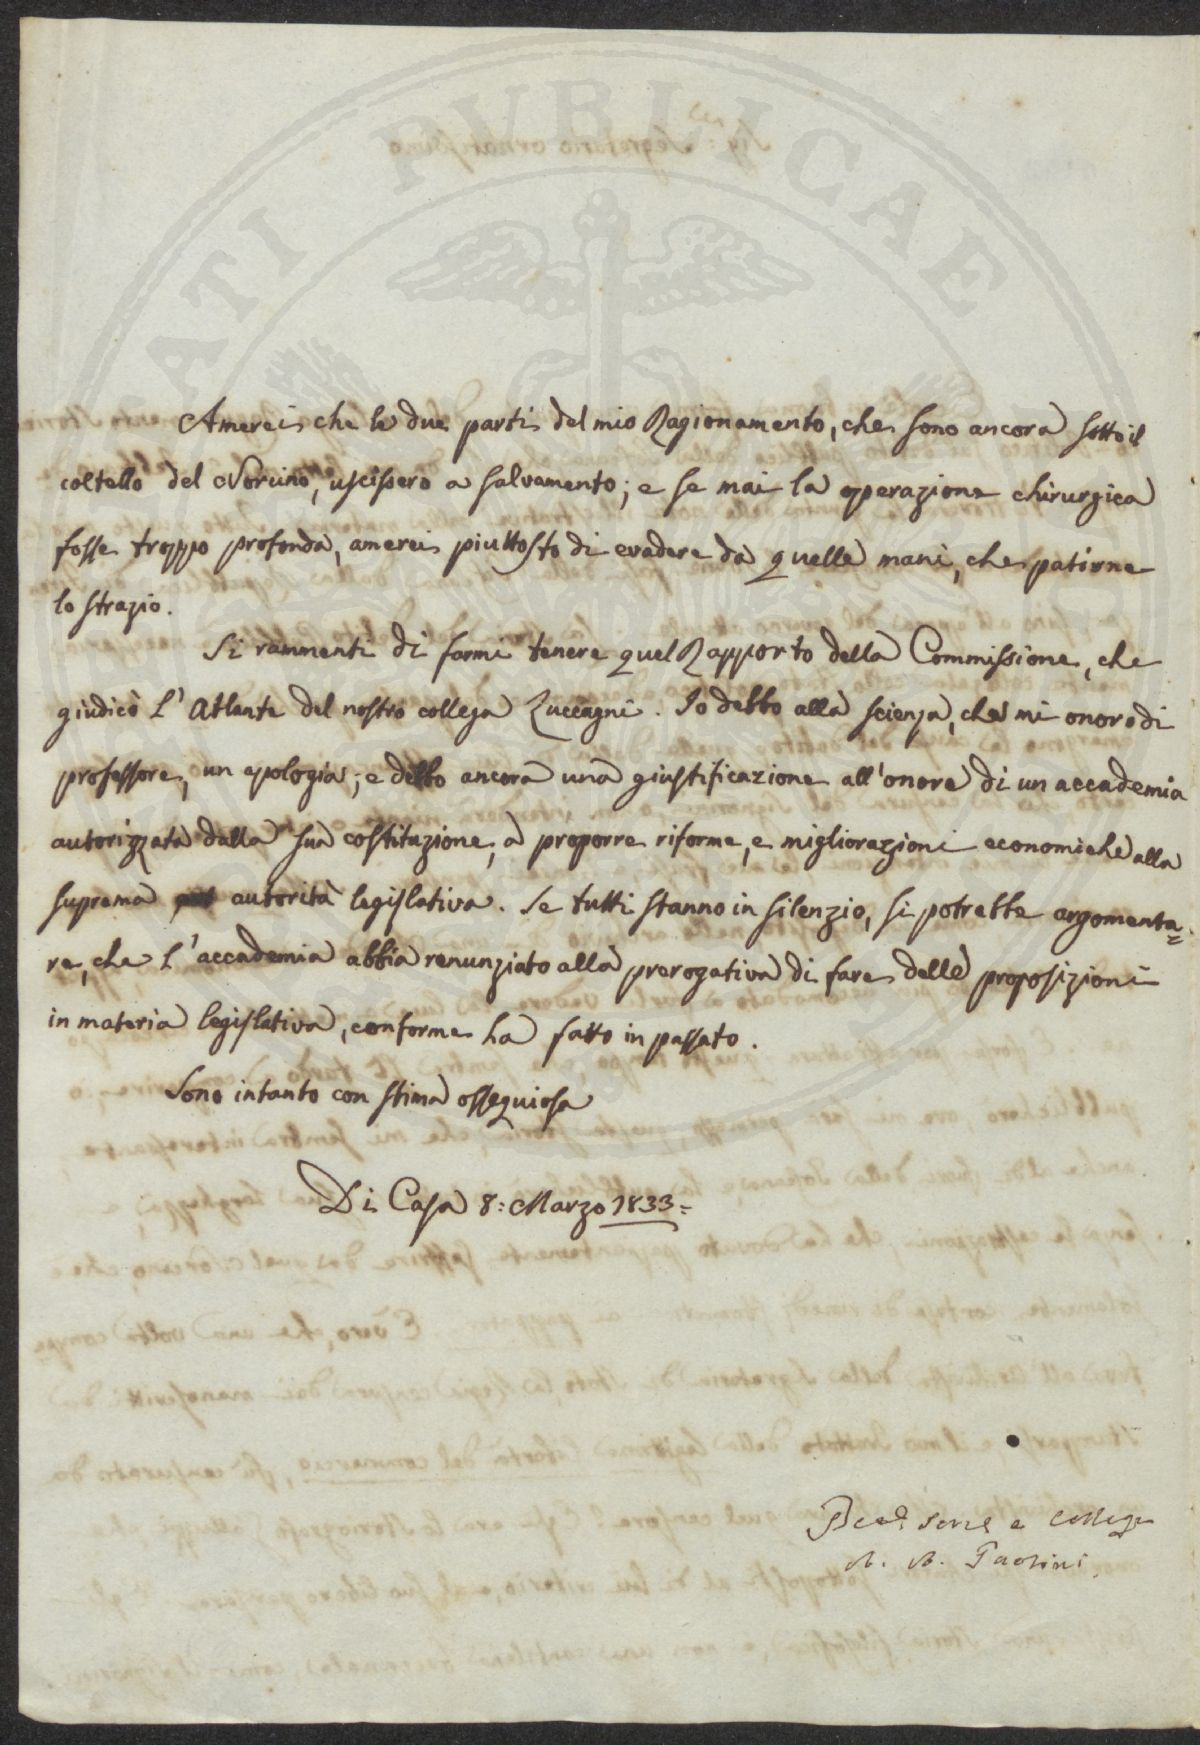 PUBLICAE
Amerei che le due parti del mio Ragionamento, che sono ancora sotto il
coltello del Norcino, uscissero a salvamento; e se mai la operazione chirurgica
fosse troppo profonda, amerei piuttosto di evadere da quelle mani, che patirne
lo strazio.
Si rammenti di farmi tenere quel Rapporto della Commissione, che
giudicò l'Atlante del nostro collega Zuccagni. Io debbo alla scienza, che mi onoro di
professore, un apologia; e debbo ancora una giustificazione all'onore di un accademia
autorizzata dalla sua costituzione, a proporre riforme, e migliorazioni economiche alla
suprema autorità legislativa. Se tutti stanno in silenzio, si potrebbe argomenta=
re, che l'accademia abbia renunziato alla prerogativa di fare delle proposizioni
in materia legislativa, conforme ha fatto in passato.
Sono intanto con stima ossequiosa
Di Casa 8: Marzo 1833=
serve e collega
A. B. Paolini